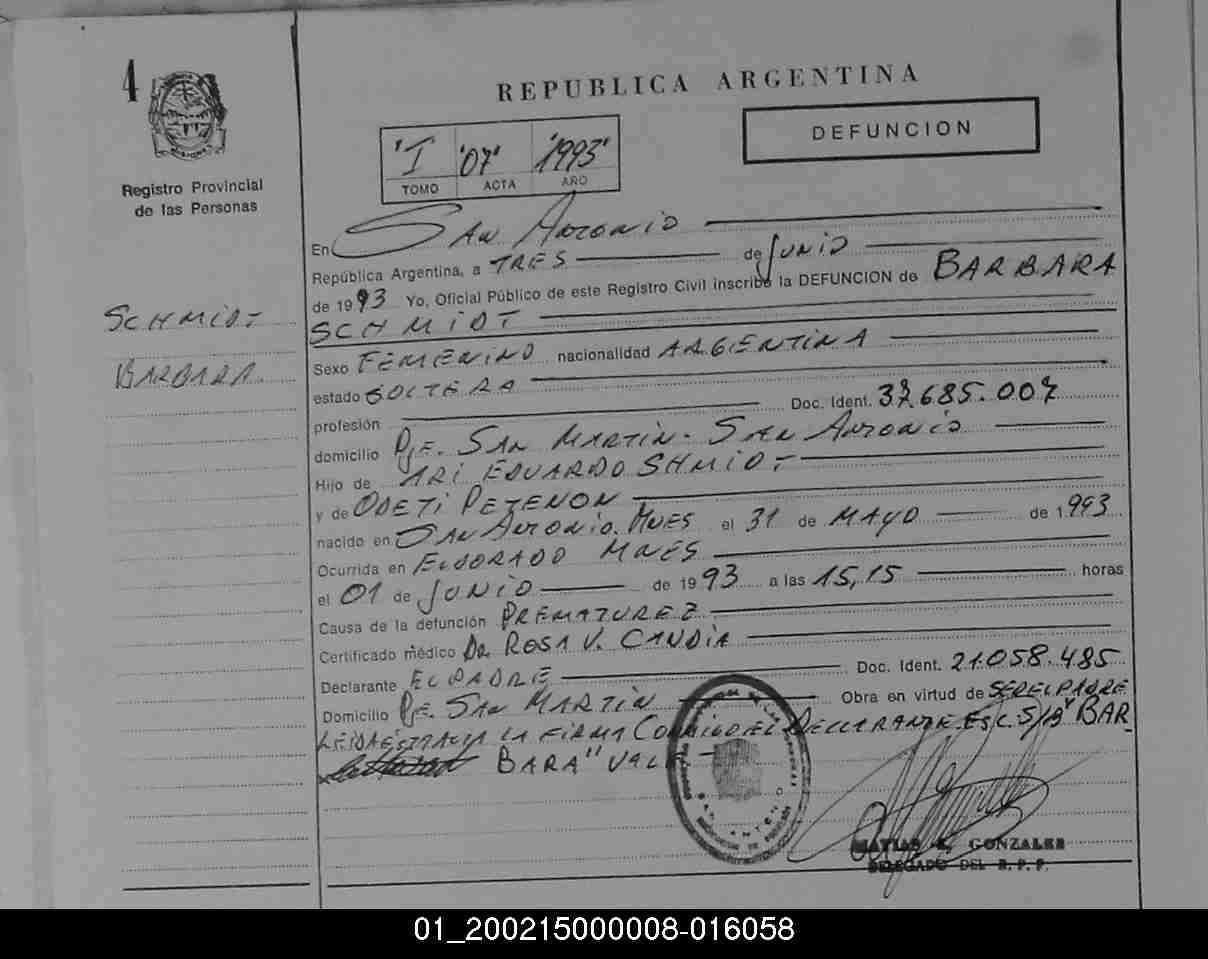 4
REPUBLICA ARGENTINA
DEFUNCION
"I "07" "1993"
TOMO ACTA AÑO
Registro Provincial
de las Personas
SCHMIDT
BARBARA
En SAN ANTONIO
República Argentina, a TRES de JUNIO
de 1993 Yo, Oficial Público de este Registro Civil inscribo la DEFUNCION de BARBARA
SCHMIDT
Sexo FEMENINO nacionalidad ARGENTINA
estado SOLTERA
profesión Doc. Ident. 37.685.007
domicilio Pje. SAN MARTIN - SAN ANTONIO
Hijo de ARI EDUARDO SHMIDT
y de ODETI PETENON
nacido en SAN ANTONIO. MNES el 31 de MAYO de 1993
Ocurrida en ELDORADO MNES
el 01 de JUNIO de 1993 a las 15,15 horas
Causa de la defunción PREMATUREZ
Certificado médico Dra. ROSA V. CANDIA
Declarante EL PADRE Doc. Ident. 21.058.485
Domicilio Pje. SAN MARTIN Obra en virtud de SER EL PADRE
LEIDA ESTA ACTA LA FIRMA CONMIGO EL DECLARANTE Es.C. S/B "BAR
BARA" VALE
SAN ANTONIO
MATIAS GONZALEZ
DELEGADO DEL R. P. P.
01_200215000008-016058